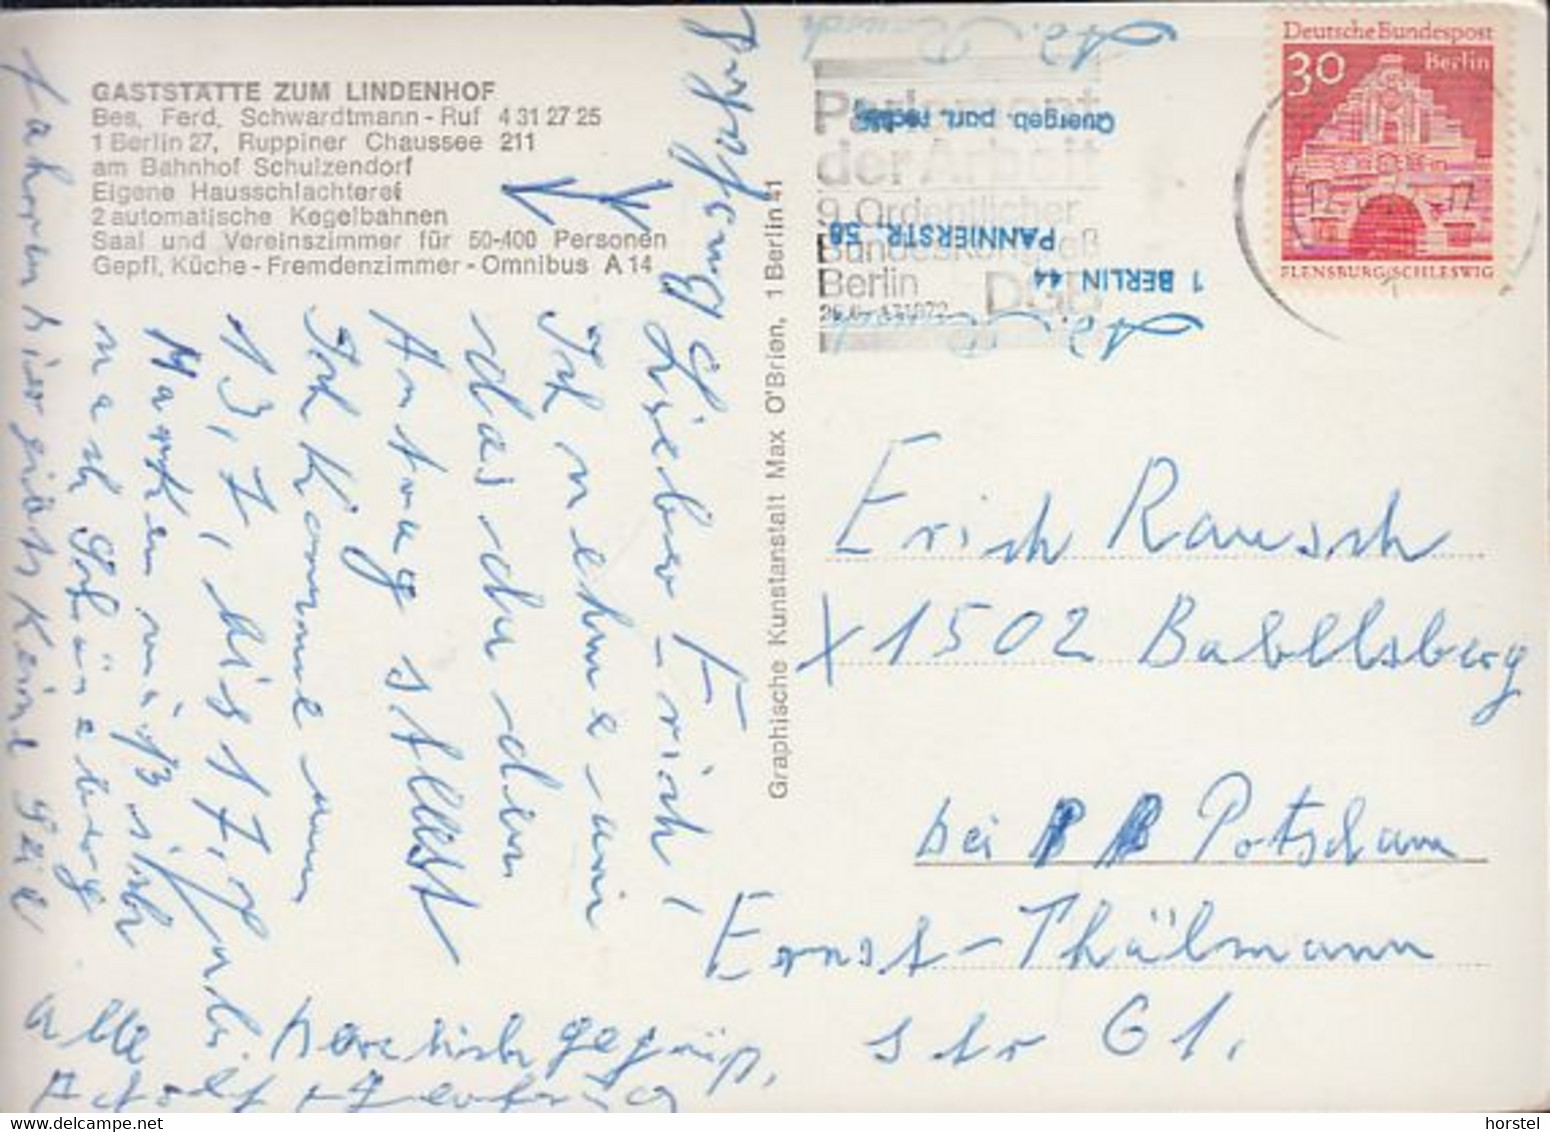 GASTSTÄTTE ZUM LINDENHOF
Bes. Ferd. Schwardtmann - Ruf 4 31 27 25
1 Berlin 27, Ruppiner Chaussee 211
am Bahnhof Schulzendorf
Eigene Hausschlachterei
2 automatische Kegelbahnen
Saal und Vereinszimmer für 50-400 Personen
Gepfl. Küche - Fremdenzimmer - Omnibus A 14
Lieber Erich!
Ich nehme an
das du den
Antrag stellst
Ich komme am
13, 7, bis 17, 7
Marken muß ich
nach Schöneberg
fahren hier gibts keine
alle herzlich gegrüß,
Graphische Kunstanstalt Max O'Brien, 1 Berlin 41
Ad. Rausch
Quergeb. part. rechts
PANNIERSTR. 58
1 BERLIN 44
Ad. Rausch
Parlament
der Arbeit
9. Ordentlicher
Bundeskongreß
Berlin DGB
Deutsche Bundespost
30 Berlin
FLENSBURG/SCHLESWIG
Erich Rausch
X 1502 Babelsberg
bei Potsdam
Ernst-Thälmann
str 61.
horstel